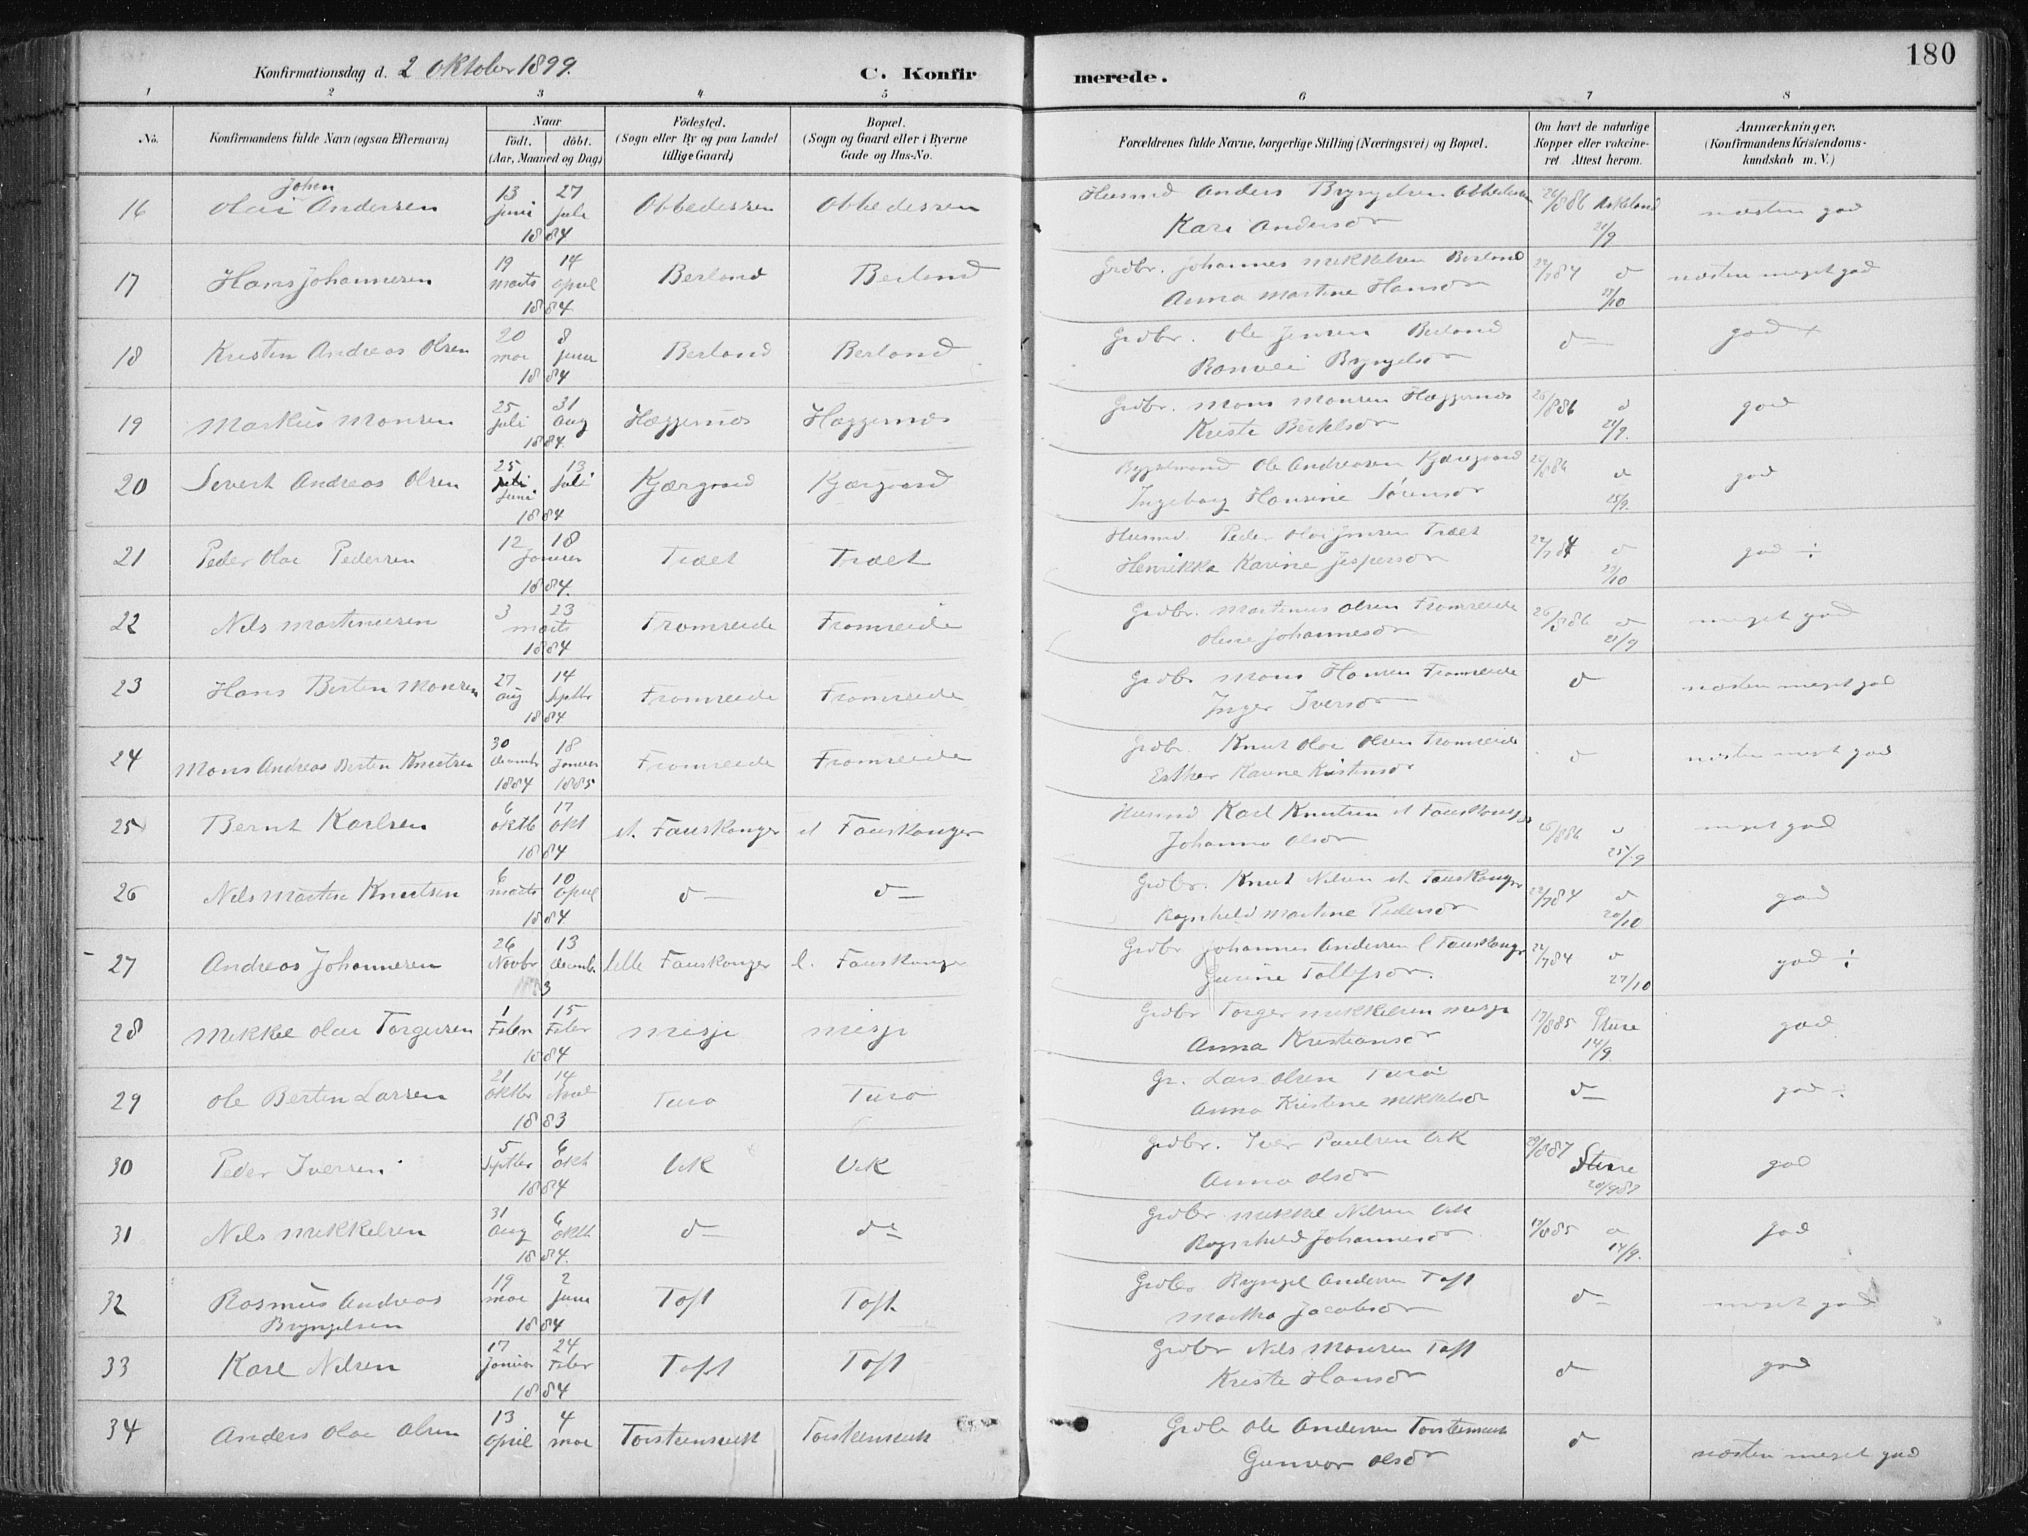 180
Konfirmationsdag d. 2 Oktober 1899.
C. Konfir merede.
1 2 3 4 5 6 7 8
No.
Konfirmandens fulde Navn (ogsaa Efternavn)
Naar
födt. döbt.
(Aar, Maaned og Dag)
Födested.
(Sogn eller By og paa Landet
tillige Gaard)
Bopæl.
(Sogn og Gaard eller i Byerne
Gade og Hus-No.
Forældrenes fulde Navne, borgerlige Stilling (Næringsvei) og Bopæl.
Om havt de naturlige
Kopper eller vakcine-
ret Attest herom.
Anmærkninger.
(Konfirmandens Kristendoms-
kundskab m. V.)
16 Olai Johan Andersen 13 Juni 27 Juli 1884 Obbedessen Obbedessen Husmd Anders Bryngelsen Obbedessen
Kari Andersdr 26/886 Askeland 21/9 næsten god
17 Hans Johannesen 19 marts 14 April 1884 Berland Berland Grdbr. Johannes Mikkelsen Berland
Anna Martine Hansdr 24/784 d 27/10 næsten meget god
18 Kristen Andreas Olsen 20 mai 8 Juni 1884 Berland Berland Grdbr. Ole Jensen Berland
Ranvei Bryngelsdr d god +
19 Markus Monsen 25 Juli 31 Aug 1884 Hæggernæs Hæggernæs Grdbr. Mons Monsen Hæggernæs
Kristi Bertelsdr 26/886 d 21/9. god
20 Sivert Andreas Olsen 25 Juni 13 Juli 1884 Kjærgaard Kjærgaard Bygselmand Ole Andreasen Kjæregaard
Ingeborg Hansine Sørensdr 26/886 d 25/9. god
21 Peder Olai Pedersen 12 18 Januar 1884. Træet Træet Husmd. Peder Olai Jensen Træet
Henrikka Karine Jespersdr 24/784 d 27/10 god ÷
22 Nils Martinusen 3 23 marts 1884 Fromreide Fromreide Grdbr. Martinus Olsen Fromreide
Oline Johannesdr 26/886 d 21/9 meget god
23 Hans Berten Monsen 27 Aug 14 Septbr 1884 Fromreide Fromreide Grdbr Mons Hansen Fromreide
Inger Iversdr d næsten meget god
24 Mons Andreas Berten Knutsen 30 decemb 1884 18 Januar 1885 Fromreide Fromreide Grdbr. Knut Olai Olsen Fromreide
Esther Karine Kristensdr d næsten meget god
25 Bernt Karlsen 6 oktb 17 okt 1884 st. Fauskanger st Fauskanger Husmd Karl Knutsen st Fauskanger
Johanna Olsdr 26/886 d 25/9 meget god
26 Nils Martin Knutsen 6 marts 10 April 1884 d d Grdbr. Knut Nilsen st Fauskanger
Ragnhild Martine Pedersdr 24/784 d 20/10 god
27 Andreas Johannesen 26 Novbr 13 decemb. 1883 lille Fauskanger l. Fauskanger Grdbr Johannes Andersen l Fauskanger
Gurine Tollefsdr. 24/784 d 27/10 god ÷
28 Mikkel Olai Torgersen 1 Febr 15 Febr 1884 Misje Misje Grdbr Torger Mikkelsen Misje
Anna Kristiansdr 17/885 Sture 14/9. god
29 Ole Berten Larsen 21 oktbr 14 1883 Turø Turø Gr. Lars Olsen Turø
Anna Kristine Mikkelsdr d god ÷
30 Peder Iversen 5 Septbr 6 okt 1884 Vik Vik Grdbr. Iver Paulsen Vik
Anna Olsdr 29/887 Sture 20/987 god
31 Nils Mikkelsen 31 Aug 6 okt 1884. d d Grdbr Mikkel Nilsen Vik
Ragnhild Johannesdr 17/885 d 14/9. god
32 Rasmus Andreas
Bryngelsen 19 mai 2 Juni 1884 Toft Toft Grdbr Bryngel Andersen Toft
Martha Jacobsdr d meget god
33 Karl Nilsen 17 Januar 24 Febr 1884 Toft Toft Grdbr Nils Monsen Toft
Kristi Hansdr d god
34 Anders Olai Olsen 13 April 4 mai Torsteinsvik Torsteinsvik Grdb Ole Andersen Torsteinsvik
Gunvor Olsdr d næsten meget god